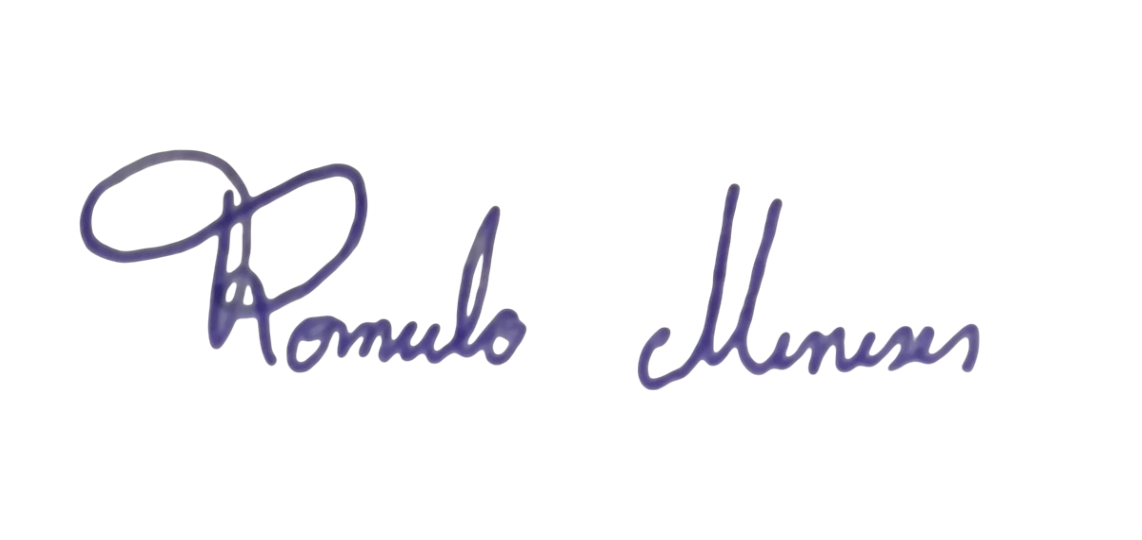 Romulo Meneses